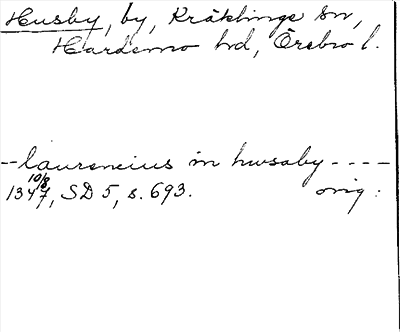 Husby, by, Kräklinge sn,
Hardemo hd, Örebro l.
-- laurencius in hwsaby ----
10/8
1347, SD 5, s. 693. orig: